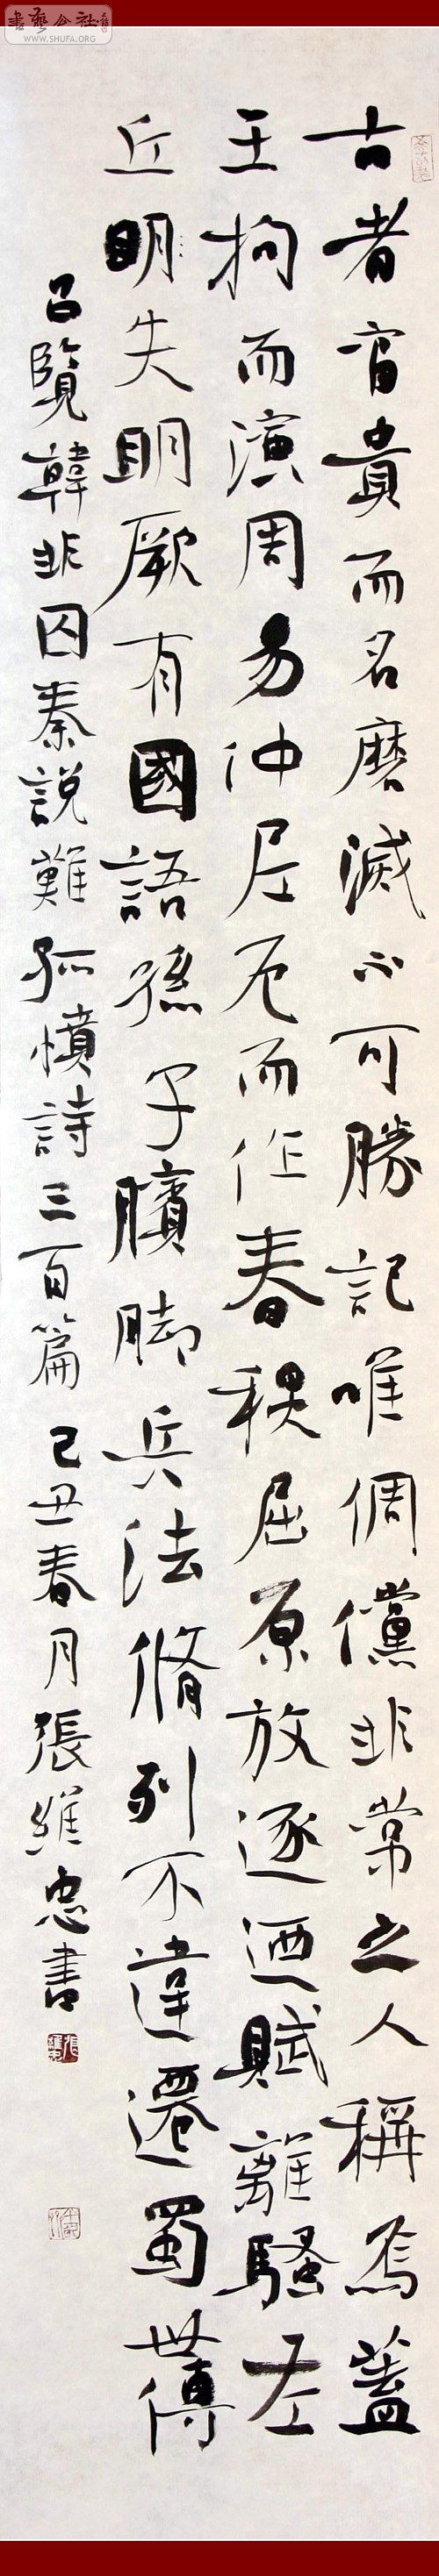 書藝公社
WWW.SHUFA.ORG
古者富貴而名磨滅不可勝記唯倜儻非常之人稱焉蓋
王拘而演周易仲尼厄而作春秋屈原放逐迺賦離騷左
丘明失明厥有國語孫子臏脚兵法脩列不違遷蜀世傳
呂覽韓非囚秦說難孤憤詩三百篇己丑春月張維忠書